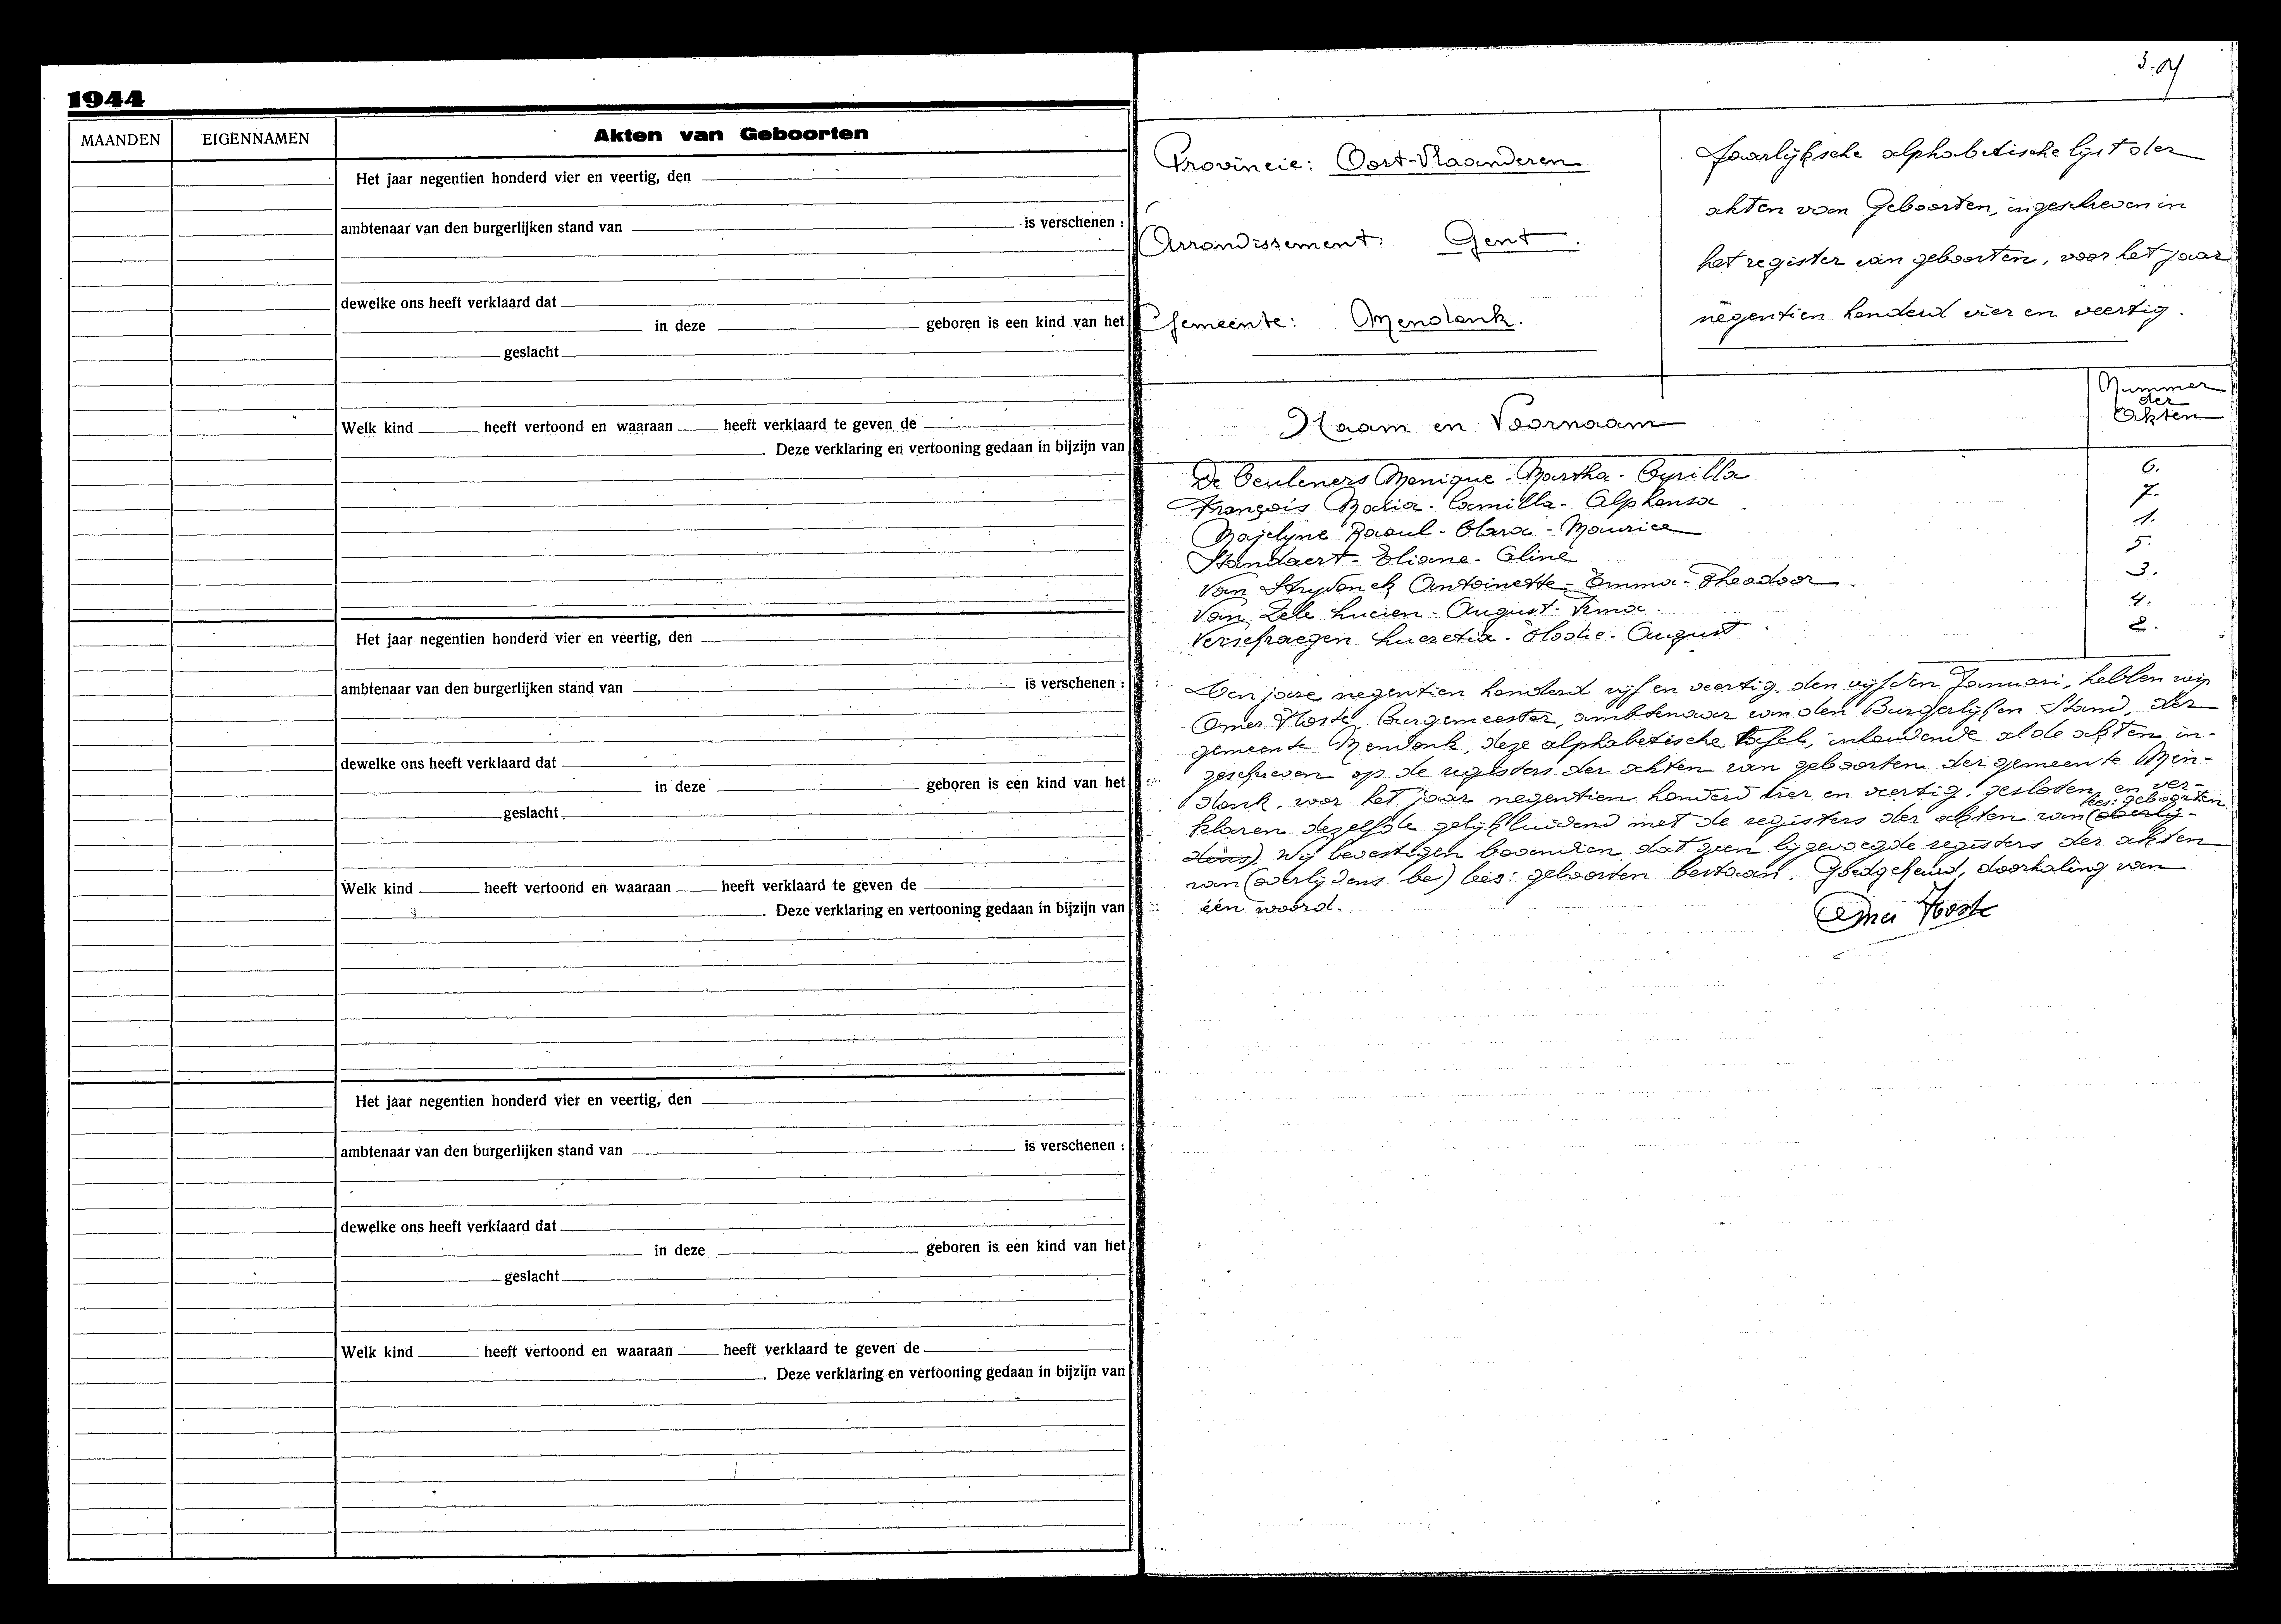 1944
MAANDEN EIGENNAMEN Akten van Geboorten
Het jaar negentien honderd vier en veertig, den
ambtenaar van den burgerlijken stand van is verschenen :
dewelke ons heeft verklaard dat
in deze geboren is een kind van het
geslacht
Welk kind heeft vertoond en waaraan heeft verklaard te geven de
. Deze verklaring en vertooning gedaan in bijzijn van
Het jaar negentien honderd vier en veertig, den
ambtenaar van den burgerlijken stand van is verschenen :
dewelke ons heeft verklaard dat
in deze geboren is een kind van het
geslacht
Welk kind heeft vertoond en waaraan heeft verklaard te geven de
. Deze verklaring en vertooning gedaan in bijzijn van
Het jaar negentien honderd vier en veertig, den
ambtenaar van den burgerlijken stand van is verschenen :
dewelke ons heeft verklaard dat
in deze geboren is een kind van het
geslacht
Welk kind heeft vertoond en waaraan heeft verklaard te geven de
. Deze verklaring en vertooning gedaan in bijzijn van
Provincie: Oost-Vlaanderen
Arrondissement: Gent.
Gemeente: Mendonk.
Jaarlijksche alphabetische lijst der
akten van Geboorten, ingeschreven in
het register van geboorten, voor het jaar
negentien honderd vier en veertig.
Naam en Voornaam
Nummer
der
Akten
De Ceuleners Monique-Martha-Cyrilla 6.
François Maria-Camilla-Alphonsa 7.
Majelyne Raoul-Clara-Maurice 1.
Standaert-Eliane-Eline 5.
Van Strydonck Antoinette-Emma-Theodoor. 3.
Van Zele Lucien-August-Rema. 4.
Verschraegen Lucretia-Elodie-August 2.
Den jare negentien honderd vijf en veertig, den vijfden Januari, hebben wij
Omer Hoste, burgemeester, ambtenaar van den Burgerlijken Stand, der
gemeente Mendonk, deze alphabetische tafel, inhoudende al de akten in-
geschreven op de registers der akten van geboorten der gemeente Men-
donk, voor het jaar negentien honderd vier en veertig, gesloten en ver-
lees: geboorten
klaren dezelfde gelijkluidend met de registers der akten van (overlij-
dens). Wij bevestigen bovendien dat geen bijgevoegde registers der akten
van (overlijdens be) lees: geboorten bestaan. Goedgekeurd, doorhaling van
één woord.
Omer Hoste